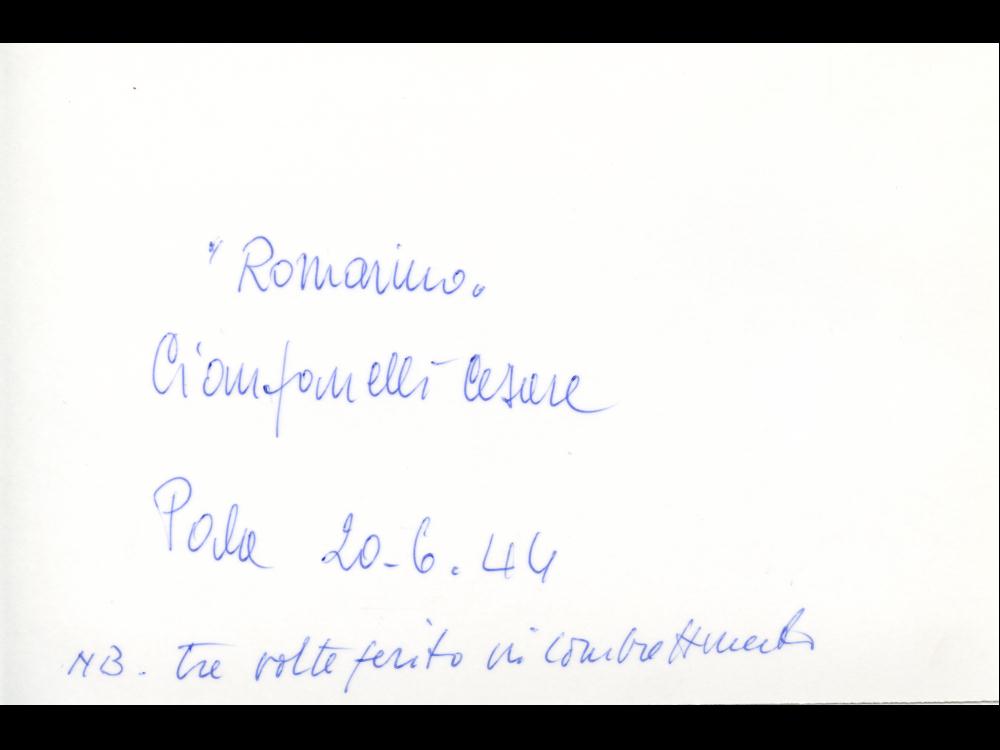 "Romarino"
Cianfanelli Cesare
Pola 20-6.44
NB. tre volte ferito in combattimento